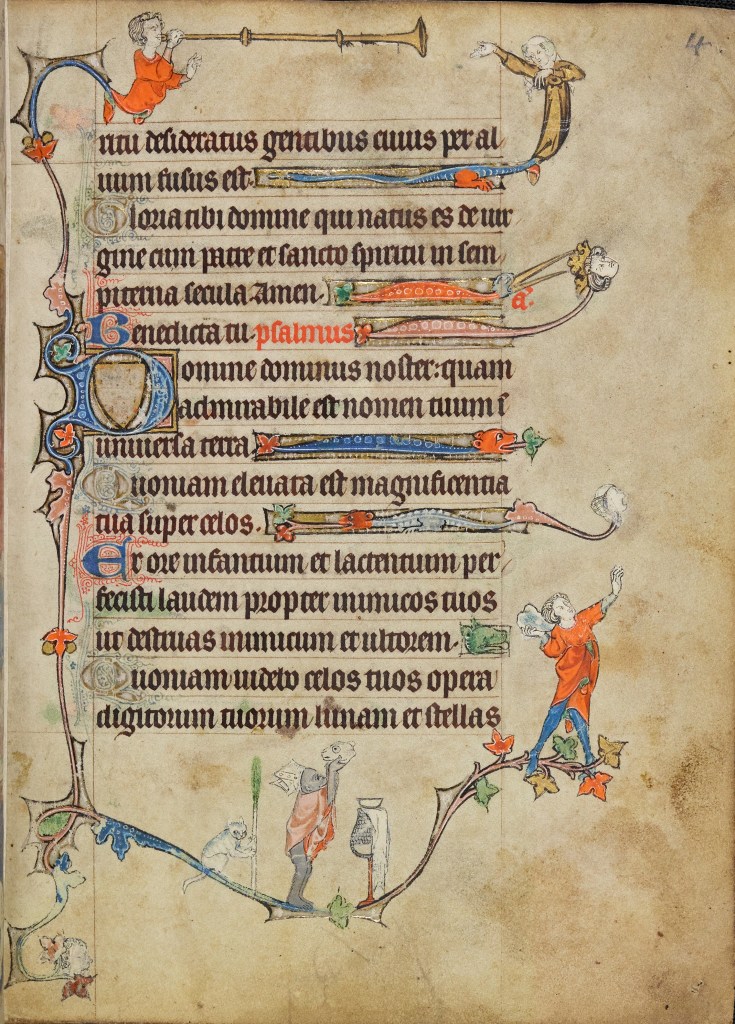 4
ritu desideratus gentibus cuius per al
uum fusus est.
Gloria tibi domine qui natus es de uir
gine cum patre et sancto spiritu in sem
piterna secula. Amen. a.
Benedicta tu psalmus
Domine dominus noster: quam
admirabile est nomen tuum ī
uniuersa terra
Quoniam eleuata est magnificentia
tua super celos.
Ex ore infantium et lactentium per
fecisti laudem propter inimicos tuos
ut destruas inimicum et ultorem.
Quoniam uidebo celos tuos opera
digitorum tuorum lunam et stellas